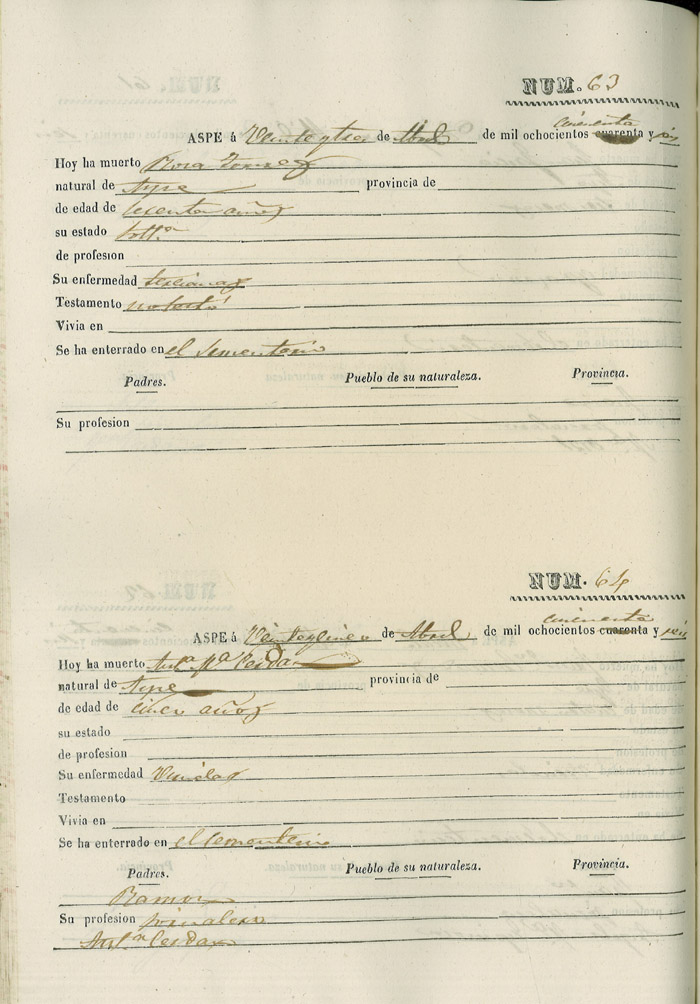 NUM. 63
cincuenta
ASPE á Veinteytres de Abril de mil ochocientos cuarenta y seis
Hoy ha muerto Rosa
natural de Aspe provincia de
de edad de sesenta años
su estado soltª
de profesion
Su enfermedad tercianas
Testamento no testó
Vivia en
Se ha enterrado en el sementerio
Padres. Pueblo de su naturaleza. Provincia.
Su profesion
NUM. 64
cincuenta
ASPE á Veinteycinco de Abril de mil ochocientos cuarenta y seis
Hoy ha muerto Antª Mª Cerdan
natural de Aspe provincia de
de edad de cinco años
su estado
de profesion
Su enfermedad Viruelas
Testamento
Vivia en
Se ha enterrado en el sementerio
Padres. Pueblo de su naturaleza. Provincia.
Ramon
Su profesion
Cerdan